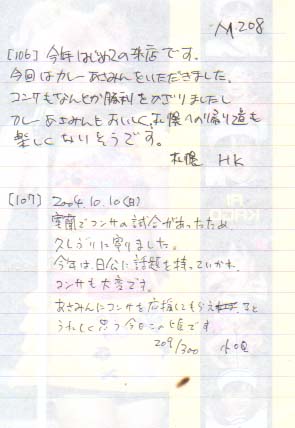 M-208
[106] 今年はじめての来店です。
今回はカレーあさみんをいただきました。
コンサもなんとか勝利をのざりましたし
カレーあさみんもおいしく、札幌への帰り道も
楽しくなりそうです。
札幌 HK
[107] 2004.10.10(日)
室蘭でコンサの試合があったため
久しぶりに寄りました。
今年は、日公に話題を持っていかれ
コンサも大変です。
あさみんにコンサも応援してもらえると
うれしく思う今日この頃です
209/300